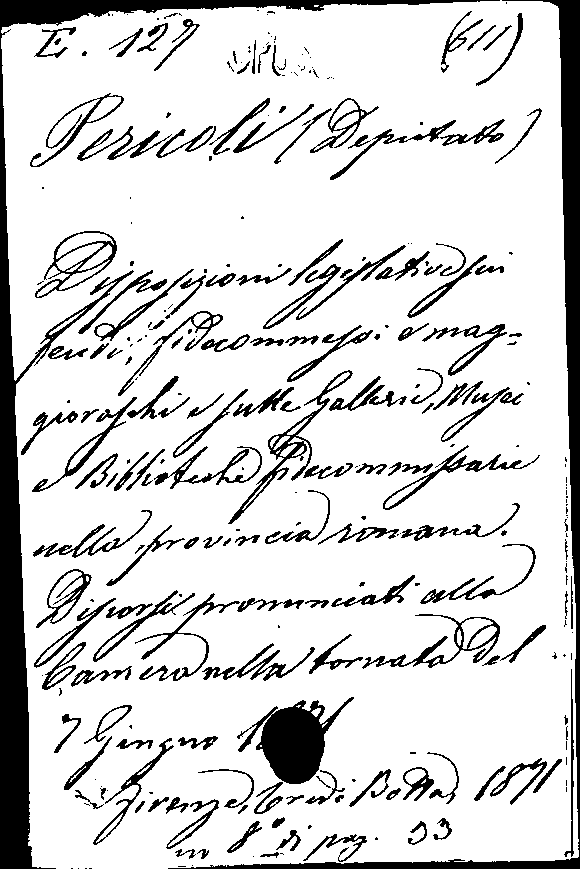 E. 127 (611)
Pericoli (Deputato)
Disposizioni legislative sui
feudi, fidecommessi e mag-
gioraschi e sulle Gallerie, Musei
e Biblioteche fidecommissarie
nella provincia romana.
Discorsi pronunciati alla
Camera nella tornata del
7 Giugno
Firenze, Eredi Botta, 1871
in 8° di pag. 33